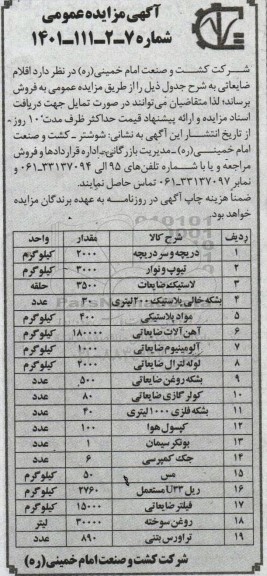 آگهی مزایده عمومی
شماره ۷-۲-۱۱۱-۱۴۰۱
شرکت کشت و صنعت امام خمینی(ره) در نظر دارد اقلام
ضایعاتی به شرح جدول ذیل را از طریق مزایده عمومی به فروش
برساند؛ لذا متقاضیان می‌توانند در صورت تمایل جهت دریافت
اسناد مزایده و ارائه پیشنهاد قیمت حداکثر ظرف مدت ۱۰ روز
از تاریخ انتشار این آگهی به نشانی: شوشتر ـ کشت و صنعت
امام خمینی(ره) ـ مدیریت بازرگانی ـ اداره قراردادها و فروش
مراجعه و یا با شماره تلفن‌های ۹۵ الی ۳۳۱۳۷۰۹۴-۰۶۱ و
نمابر ۳۳۱۳۷۰۹۷-۰۶۱ تماس حاصل نمایند.
ضمناً هزینه چاپ آگهی در روزنامه به عهده برندگان مزایده
خواهد بود.
ردیف شرح کالا مقدار واحد
۱ دریچه و سر دریچه ۲۰۰۰ کیلوگرم
۲ تیوپ و نوار ۳۰۰۰ کیلوگرم
۳ لاستیک ضایعات ۳۵۰۰ حلقه
۴ بشکه خالی پلاستیک ۲۰۰ لیتری عدد
۵ مواد پلاستیکی ۴۰۰ کیلوگرم
۶ آهن آلات ضایعاتی ۱۸۰۰۰۰ کیلوگرم
۷ آلومینیوم ضایعاتی ۱۰۰۰ کیلوگرم
۸ لوله لترال ضایعاتی ۲۰۰۰ کیلوگرم
۹ بشکه روغن ضایعاتی ۵۰۰ عدد
۱۰ کولر گازی ضایعاتی ۸۰ عدد
۱۱ بشکه فلزی ۱۰۰۰ لیتری ۴۰ عدد
۱۲ کپسول هوا ۱۰۰ عدد
۱۳ بونکر سیمان ۱ عدد
۱۴ جک کمپرسی ۶ عدد
۱۵ مس ۵۰ کیلوگرم
۱۶ ریل U33 مستعمل ۲۷۶۰ کیلوگرم
۱۷ فیلتر ضایعاتی ۱۵۰۰۰ کیلوگرم
۱۸ روغن سوخته ۳۰۰۰۰ لیتر
۱۹ تراورس بتنی ۸۹۰ عدد
شرکت کشت و صنعت امام خمینی (ره)